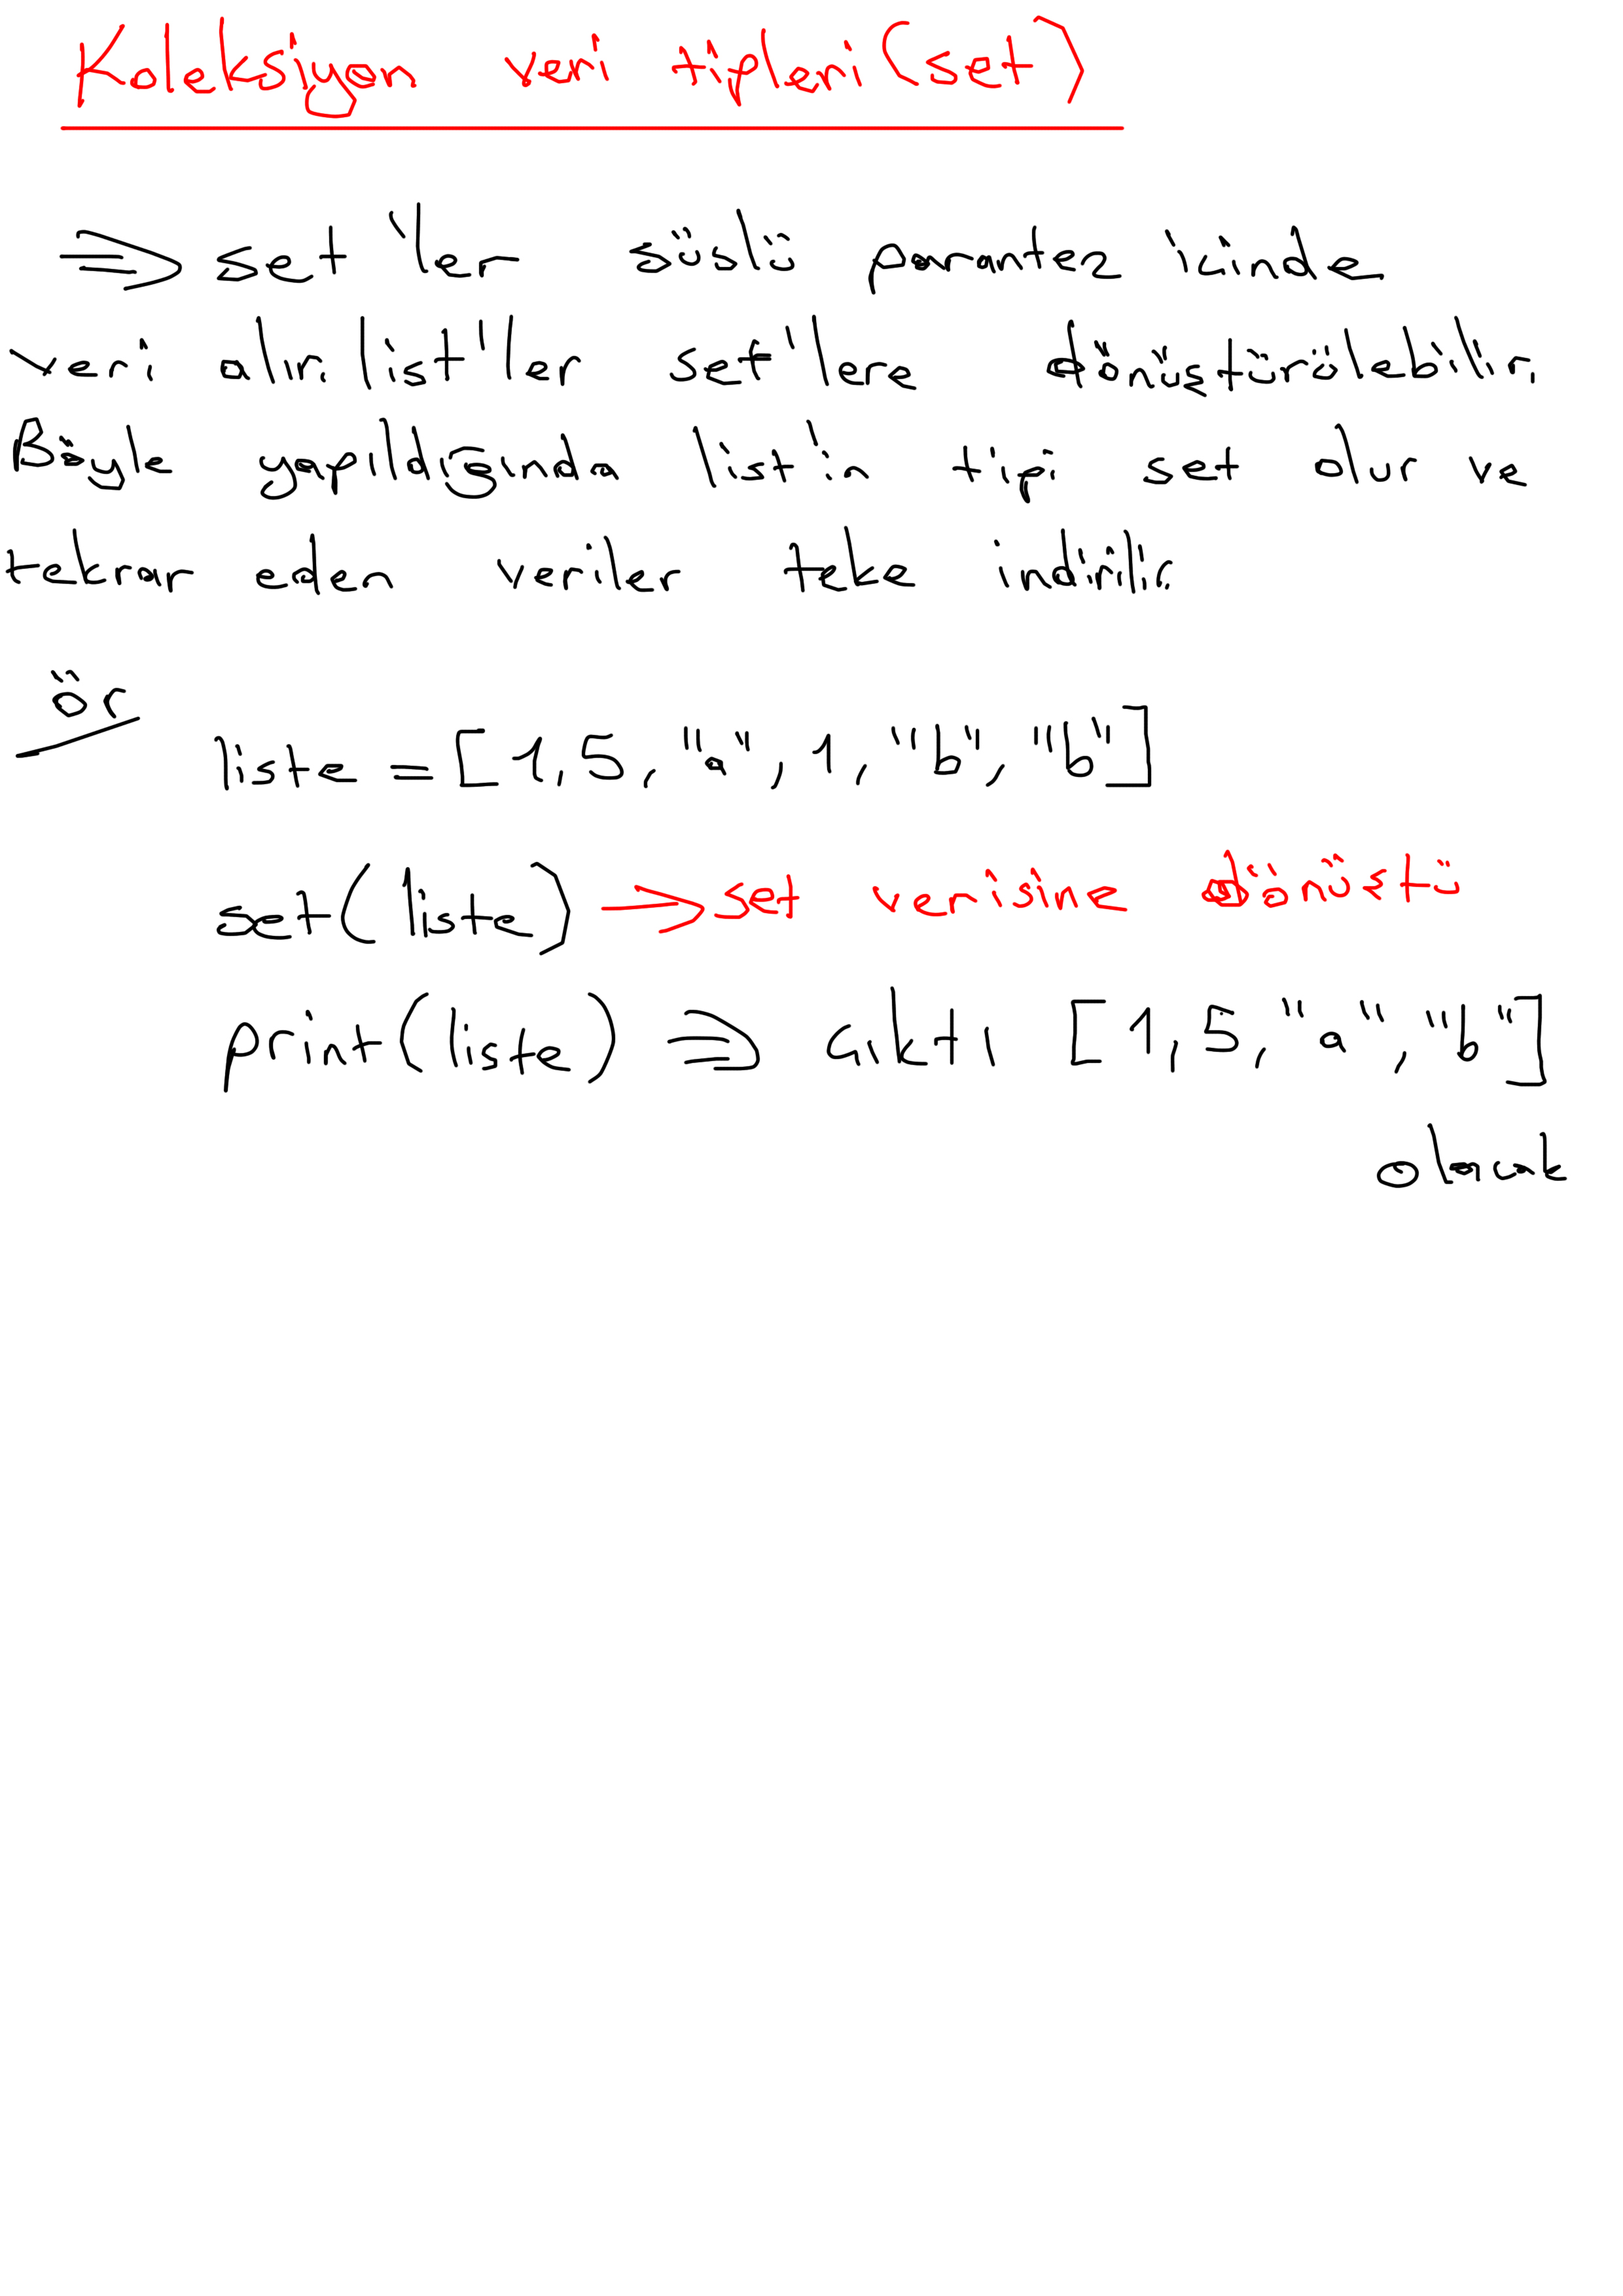 Koleksiyon veri tipleri (set)
⇒ set 'ler süslü parantez içinde
veri alır. list'ler set'lere dönüştürülebilir.
Böyle yapıldığında list'in tipi set olur ve
tekrar eden veriler teke indirilir.
ör
liste = [1, 5, "a", 1, "b", "b"]
set(liste) → set verisine dönüştü
print(liste) ⇒ çıktı [1, 5, "a", "b"]
olacak